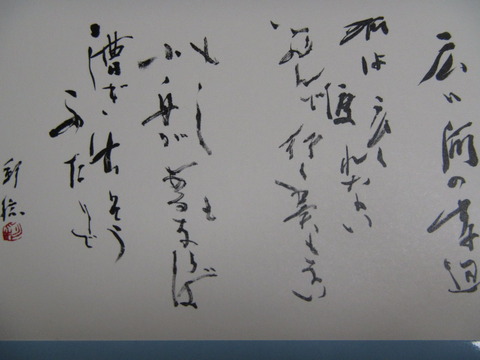 広い河の岸辺
河は広く
渡れない
飛んで行く翼もない
もしも
小舟があるならば
漕ぎ出そう
ふたりで